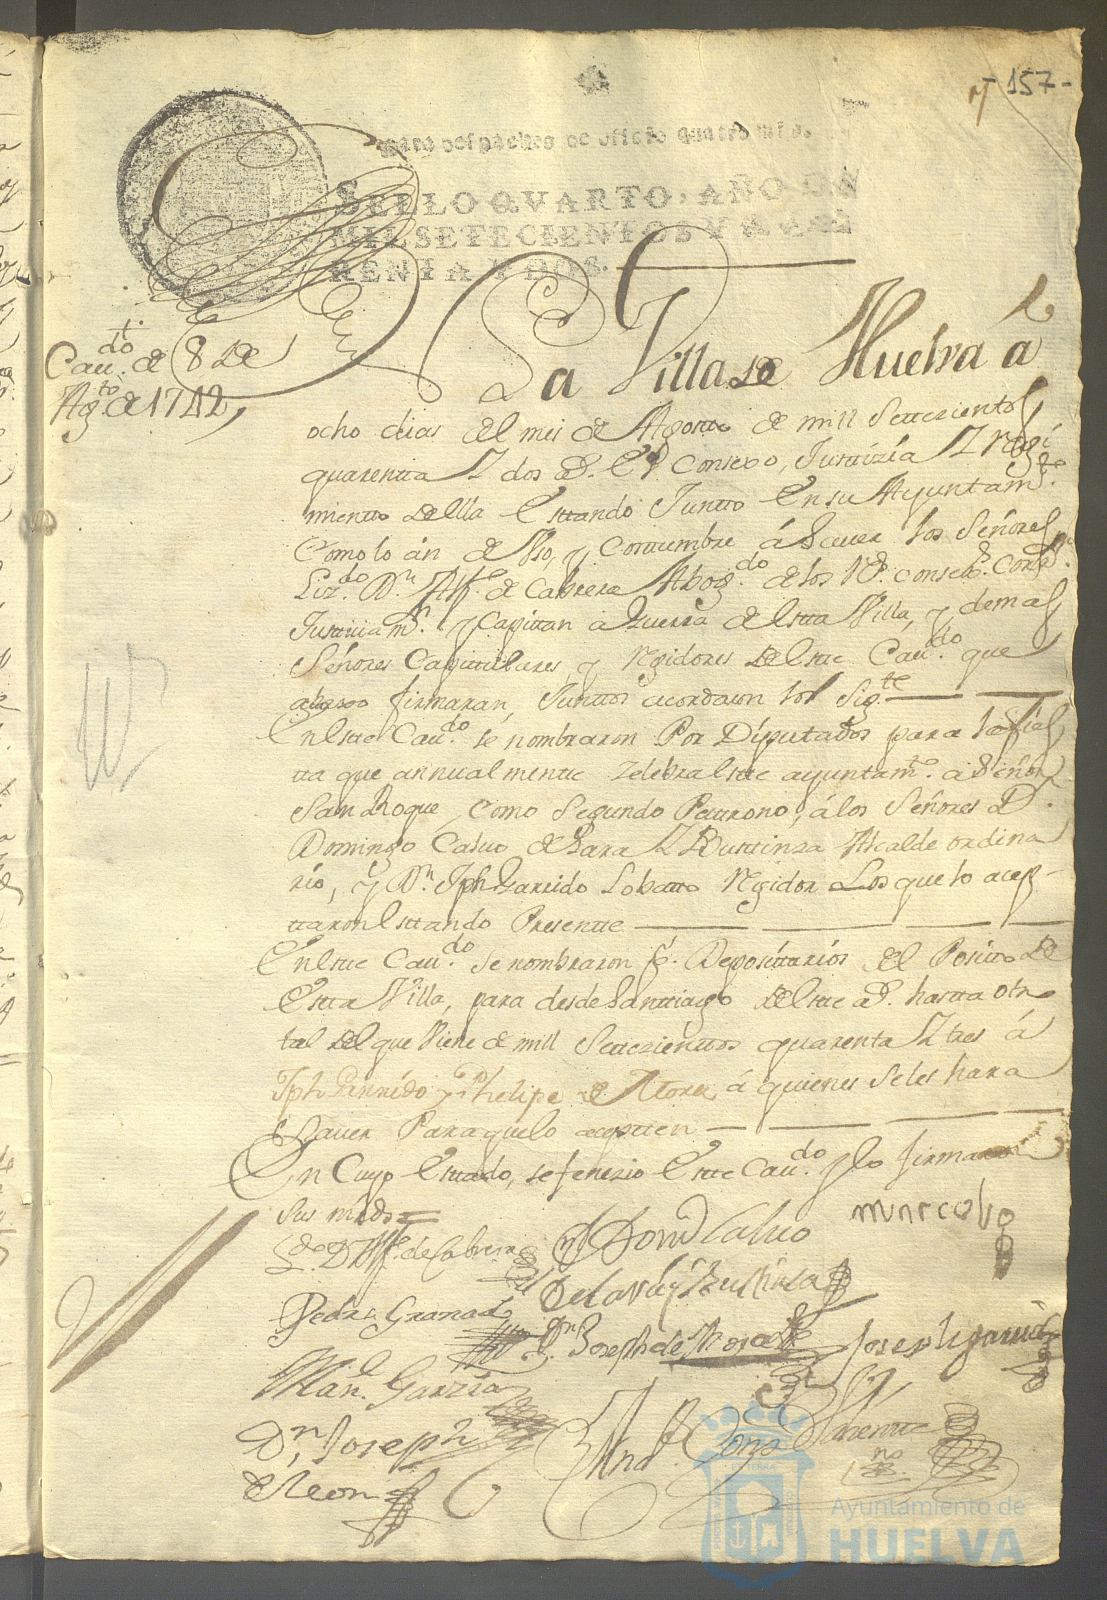 157-
para despachos de oficio quatro mrs.
SELLO QVARTO, AÑO DE
MIL SETECIENTOS Y QVA
RENTA Y DOS.
Cau.do de 8 de
Ag.to de 1742
La Villa de Huelva á
ocho dias del mes de Agosto de mill Settezientos
quarentta Y dos a.s El Consexo, Justtizia Y regi
miento de ella esttando Juntto En su Ayuntam.to
Como lo án de Vso, y Costtumbre á Sauer los Señores
Liz.do D.n Alf.e de Cabrera Abog.do de los R.s consejos. Corr.or
Justicia m.r y Capittan a Guerra de estta Villa, y demas
Señores Capittulares, y Rejidores de estte Cau.do que
abaxo firmaran, Junttos acordaron lo Sig.te
En estte Cau.do se nombraron Por Diputtados para la fies
tta que annualmentte Zelebra estte ayuntam.to a Señor
San Roque, como Segundo Pattrono, á los Señores D.n
Domingo Caluo de Lara Y Busttinza Alcalde ordina
rio, y D.n Jph Garrido Lobatto Rejidor Los que lo acep-
ttaron esttando Presentte
En estte Cau.do se nombraron p.r Deposittarios del Positto de
Estta Villa, para desde Santtiago de estte a.o hastta otro
tal del que Viene de mill Settezienttos quarenta Y tres á
Jph Garrido y Phelipe de Mora, á quienes se les hara
Sauer Para que lo acptten
En Cuyo Esttado, se fenezio Estte Cau.do y lo firmaron
Sus mrds
L.do D. Alf.e de Cabrera
D.n Dom.o Caluo
marcolo
de Lara y Bustinza
Pedro Granado
D.n Joseph de Mora
Joseph garrido
Man.l Garzia
D.n Joseph
de Leon
And.s Gonz
no
Ayuntamiento de
HUELVA